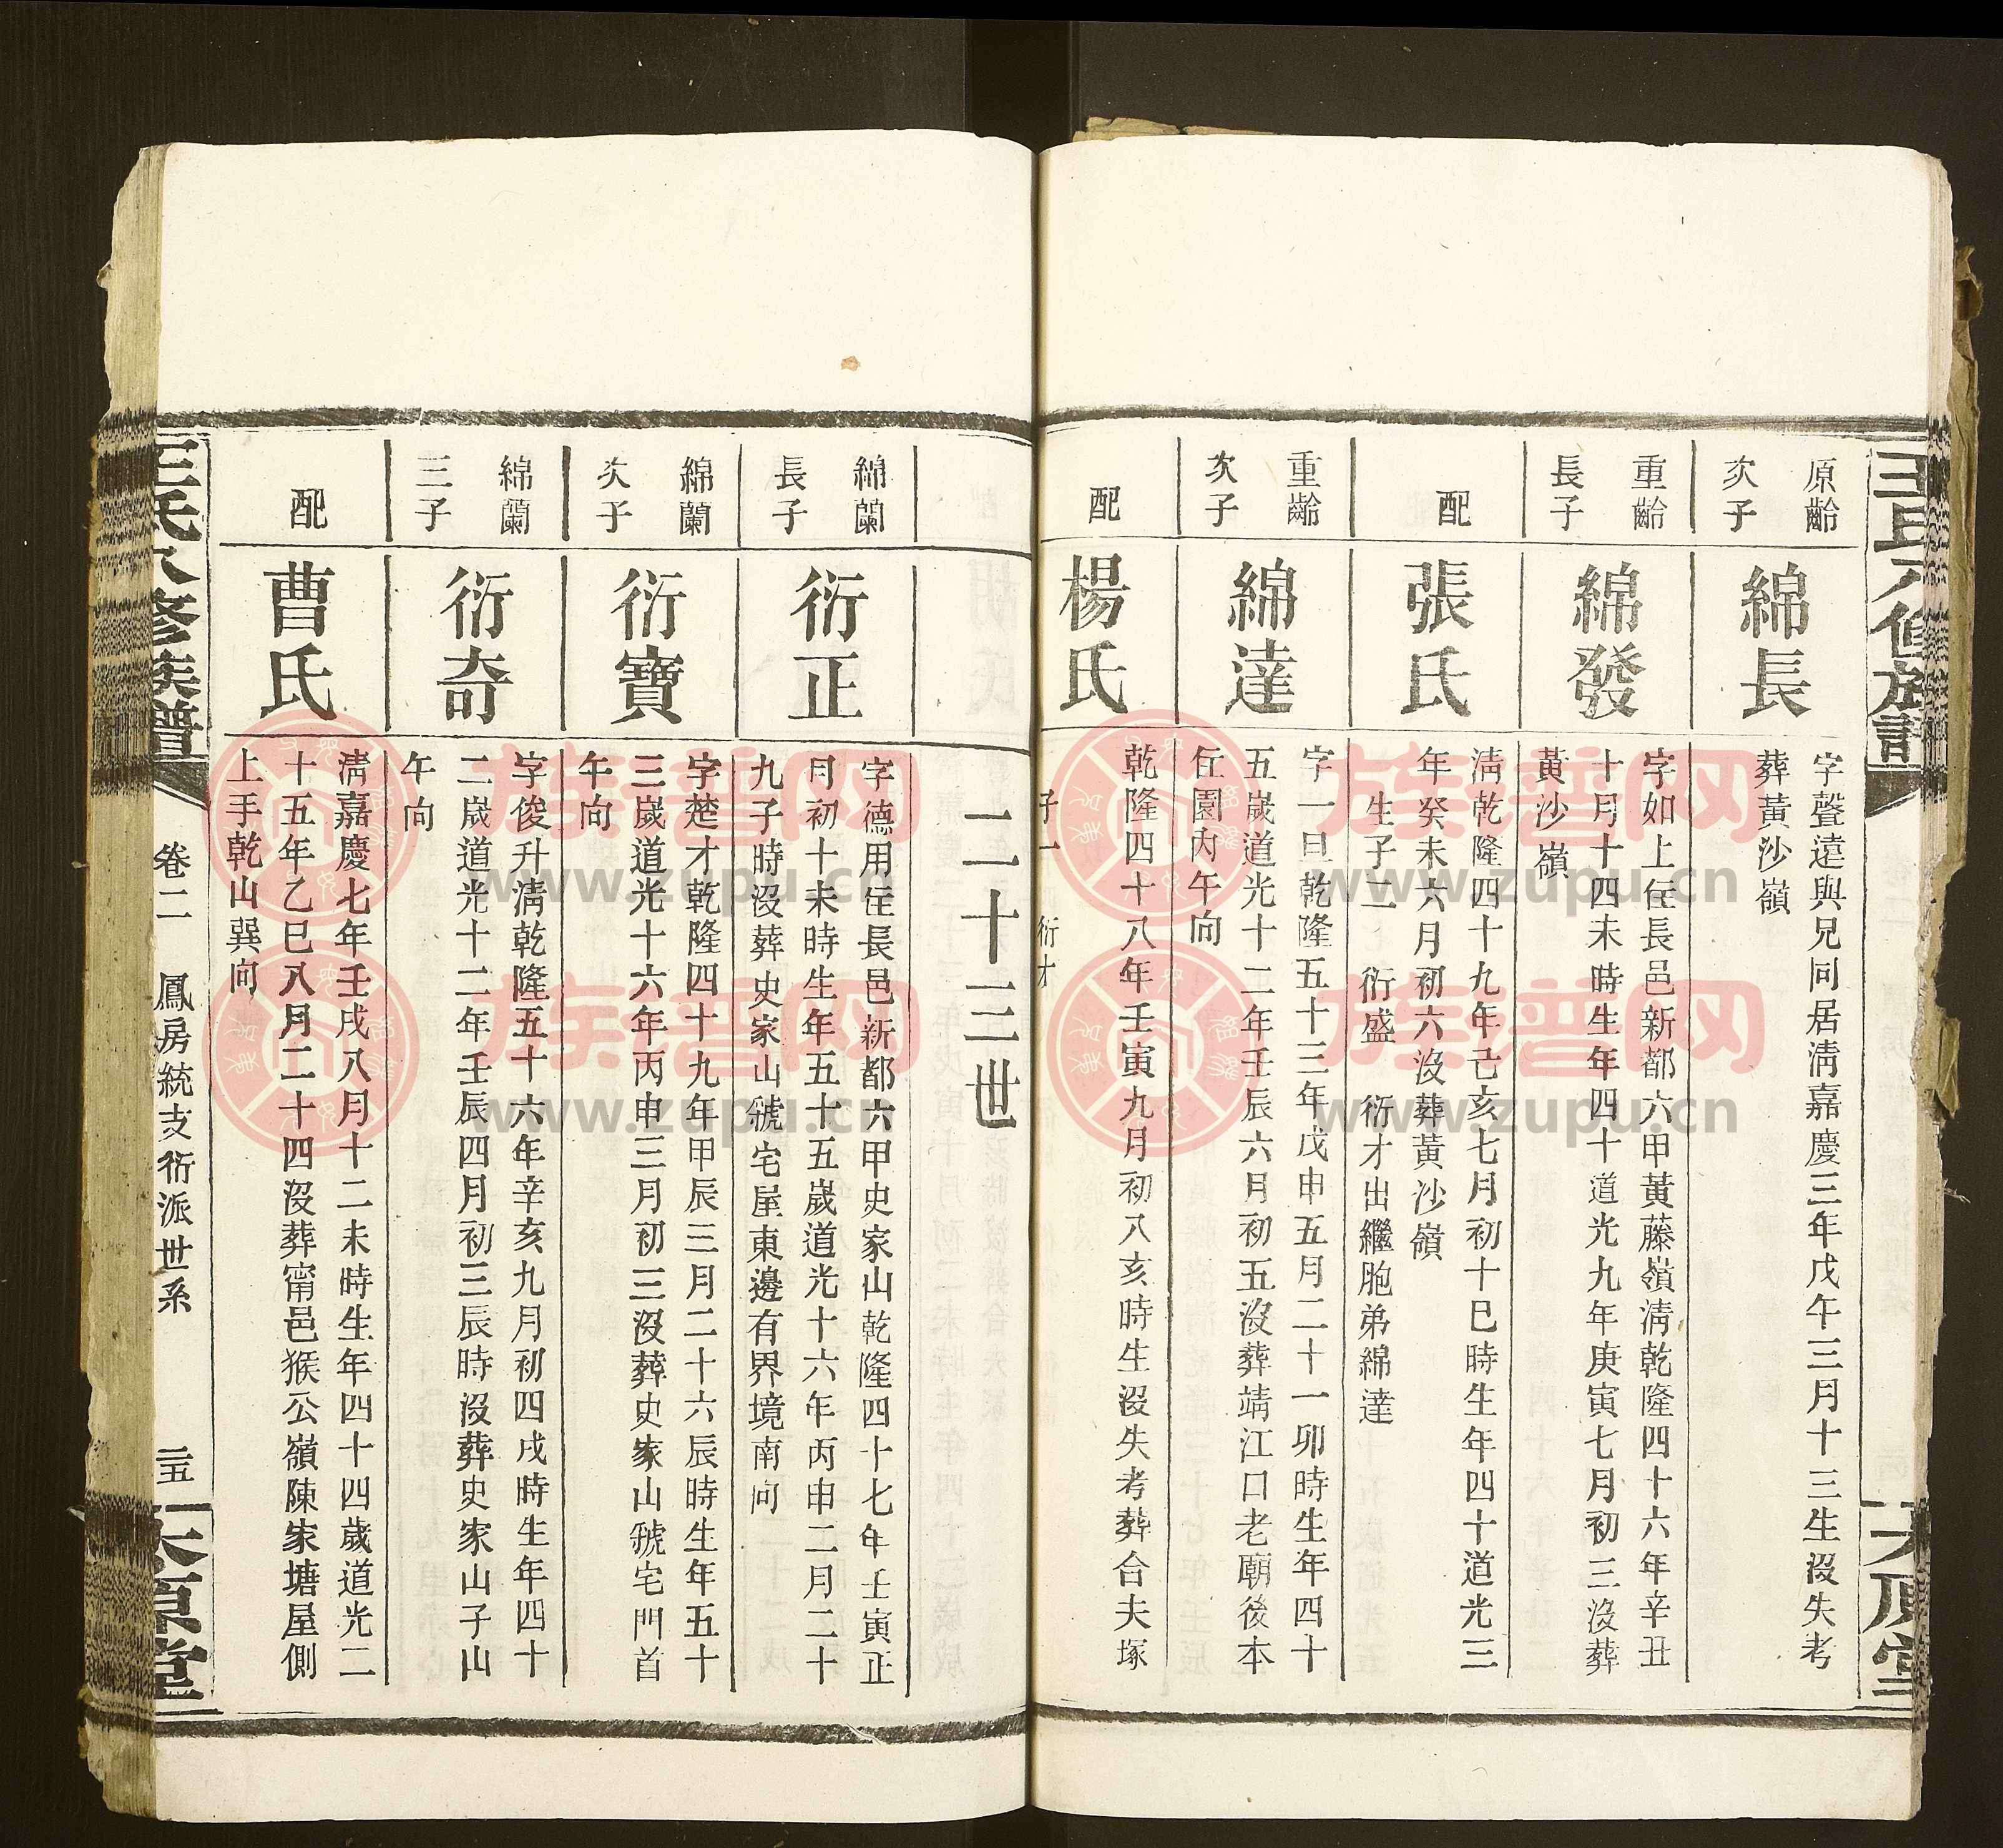 原齡
次子
綿長
字聲遠與兄同居清嘉慶三年戊午三月十三生沒失考
葬黃沙嶺
重齡
長子
綿發
字如上住長邑新都六甲黃藤嶺清乾隆四十六年辛丑
十月十四未時生年四十道光九年庚寅七月初三沒葬
黃沙嶺
配
張氏
清乾隆四十九年己亥七月初十巳時生年四十道光三
年癸未六月初六沒葬黃沙嶺
生子二 衍盛 衍才出繼胞弟綿達
重齡
次子
綿達
字一旦乾隆五十三年戊申五月二十一卯時生年四十
五歲道光十二年壬辰六月初五沒葬靖江口老廟後本
住園內午向
配
楊氏
乾隆四十八年壬寅九月初八亥時生沒失考葬合夫塚
子一 衍才
二十三世
綿蘭
長子
衍正
字德用住長邑新都六甲史家山乾隆四十七年壬寅正
月初十未時生年五十五歲道光十六年丙申二月二十
九子時沒葬史家山號宅屋東邊有界境南向
綿蘭
次子
衍寶
字楚才乾隆四十九年甲辰三月二十六辰時生年五十
三歲道光十六年丙申三月初三沒葬史家山號宅門首
午向
綿蘭
三子
衍奇
字俊升清乾隆五十六年辛亥九月初四戌時生年四十
二歲道光十二年壬辰四月初三辰時沒葬史家山子山
午向
配
曹氏
清嘉慶七年壬戌八月十二未時生年四十四歲道光二
十五年乙巳八月二十四沒葬甯邑猴公嶺陳家塘屋側
上手乾山巽向
王氏八修族譜
卷二 鳳房統支衍派世系
二五
太原堂
族谱网
www.zupu.cn
族谱网
www.zupu.cn
族谱网
www.zupu.cn
族谱网
www.zupu.cn